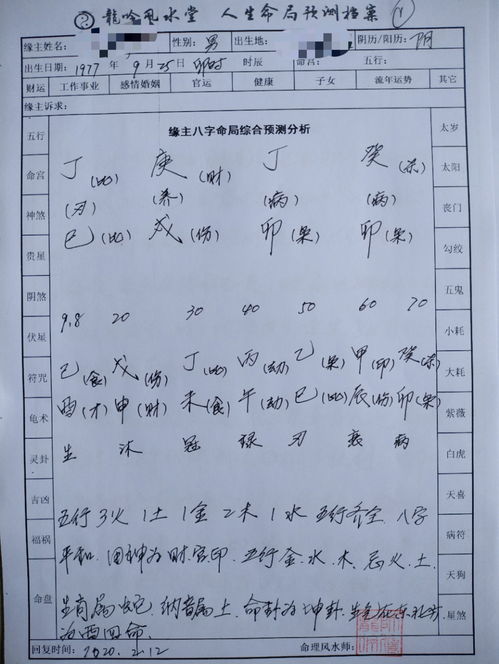 龍吟風水堂 人生命局预测档案
缘主姓名: 性别: 男 出生地: 阴历/阳历: 阴
出生日期: 1977 年 9 月 25日 卯时 时辰 命宫: 五行:
财运 工作事业 感情婚姻 官运 健康 子女 流年运势 其它
缘主诉求:
五行 缘主八字命局综合预测分析 太岁
丁(比) 庚(财) 丁 癸(杀)
命宫 太阳
(刃) (养) (病) (病)
神煞 丧门
巳(比) 戌(伤) 卯(枭) 卯(枭)
贵星 勾绞
阴煞 五鬼
9.8 20 30 40 50 60 70
伏星 小耗
己(食) 戊(伤) 丁(比) 丙(劫) 乙(枭) 甲(印) 癸(杀)
符咒 大耗
酉(才) 申(财) 未(食) 午(劫) 巳(比) 辰(伤) 卯(枭)
龟术 紫薇
生 沐 冠 禄 刃 衰 病
灵卦 白虎
吉凶 天喜
五行3火1土1金2木1水 五行齐全.八字
福祸 病符
平和.用神为财官印.五行金.水.木.忌火.土.
天狗
生肖属蛇.纳音属土.命卦为坤卦.
命盘 星煞
为西四命.
回复时间: 2020.2.12 命理风水师: